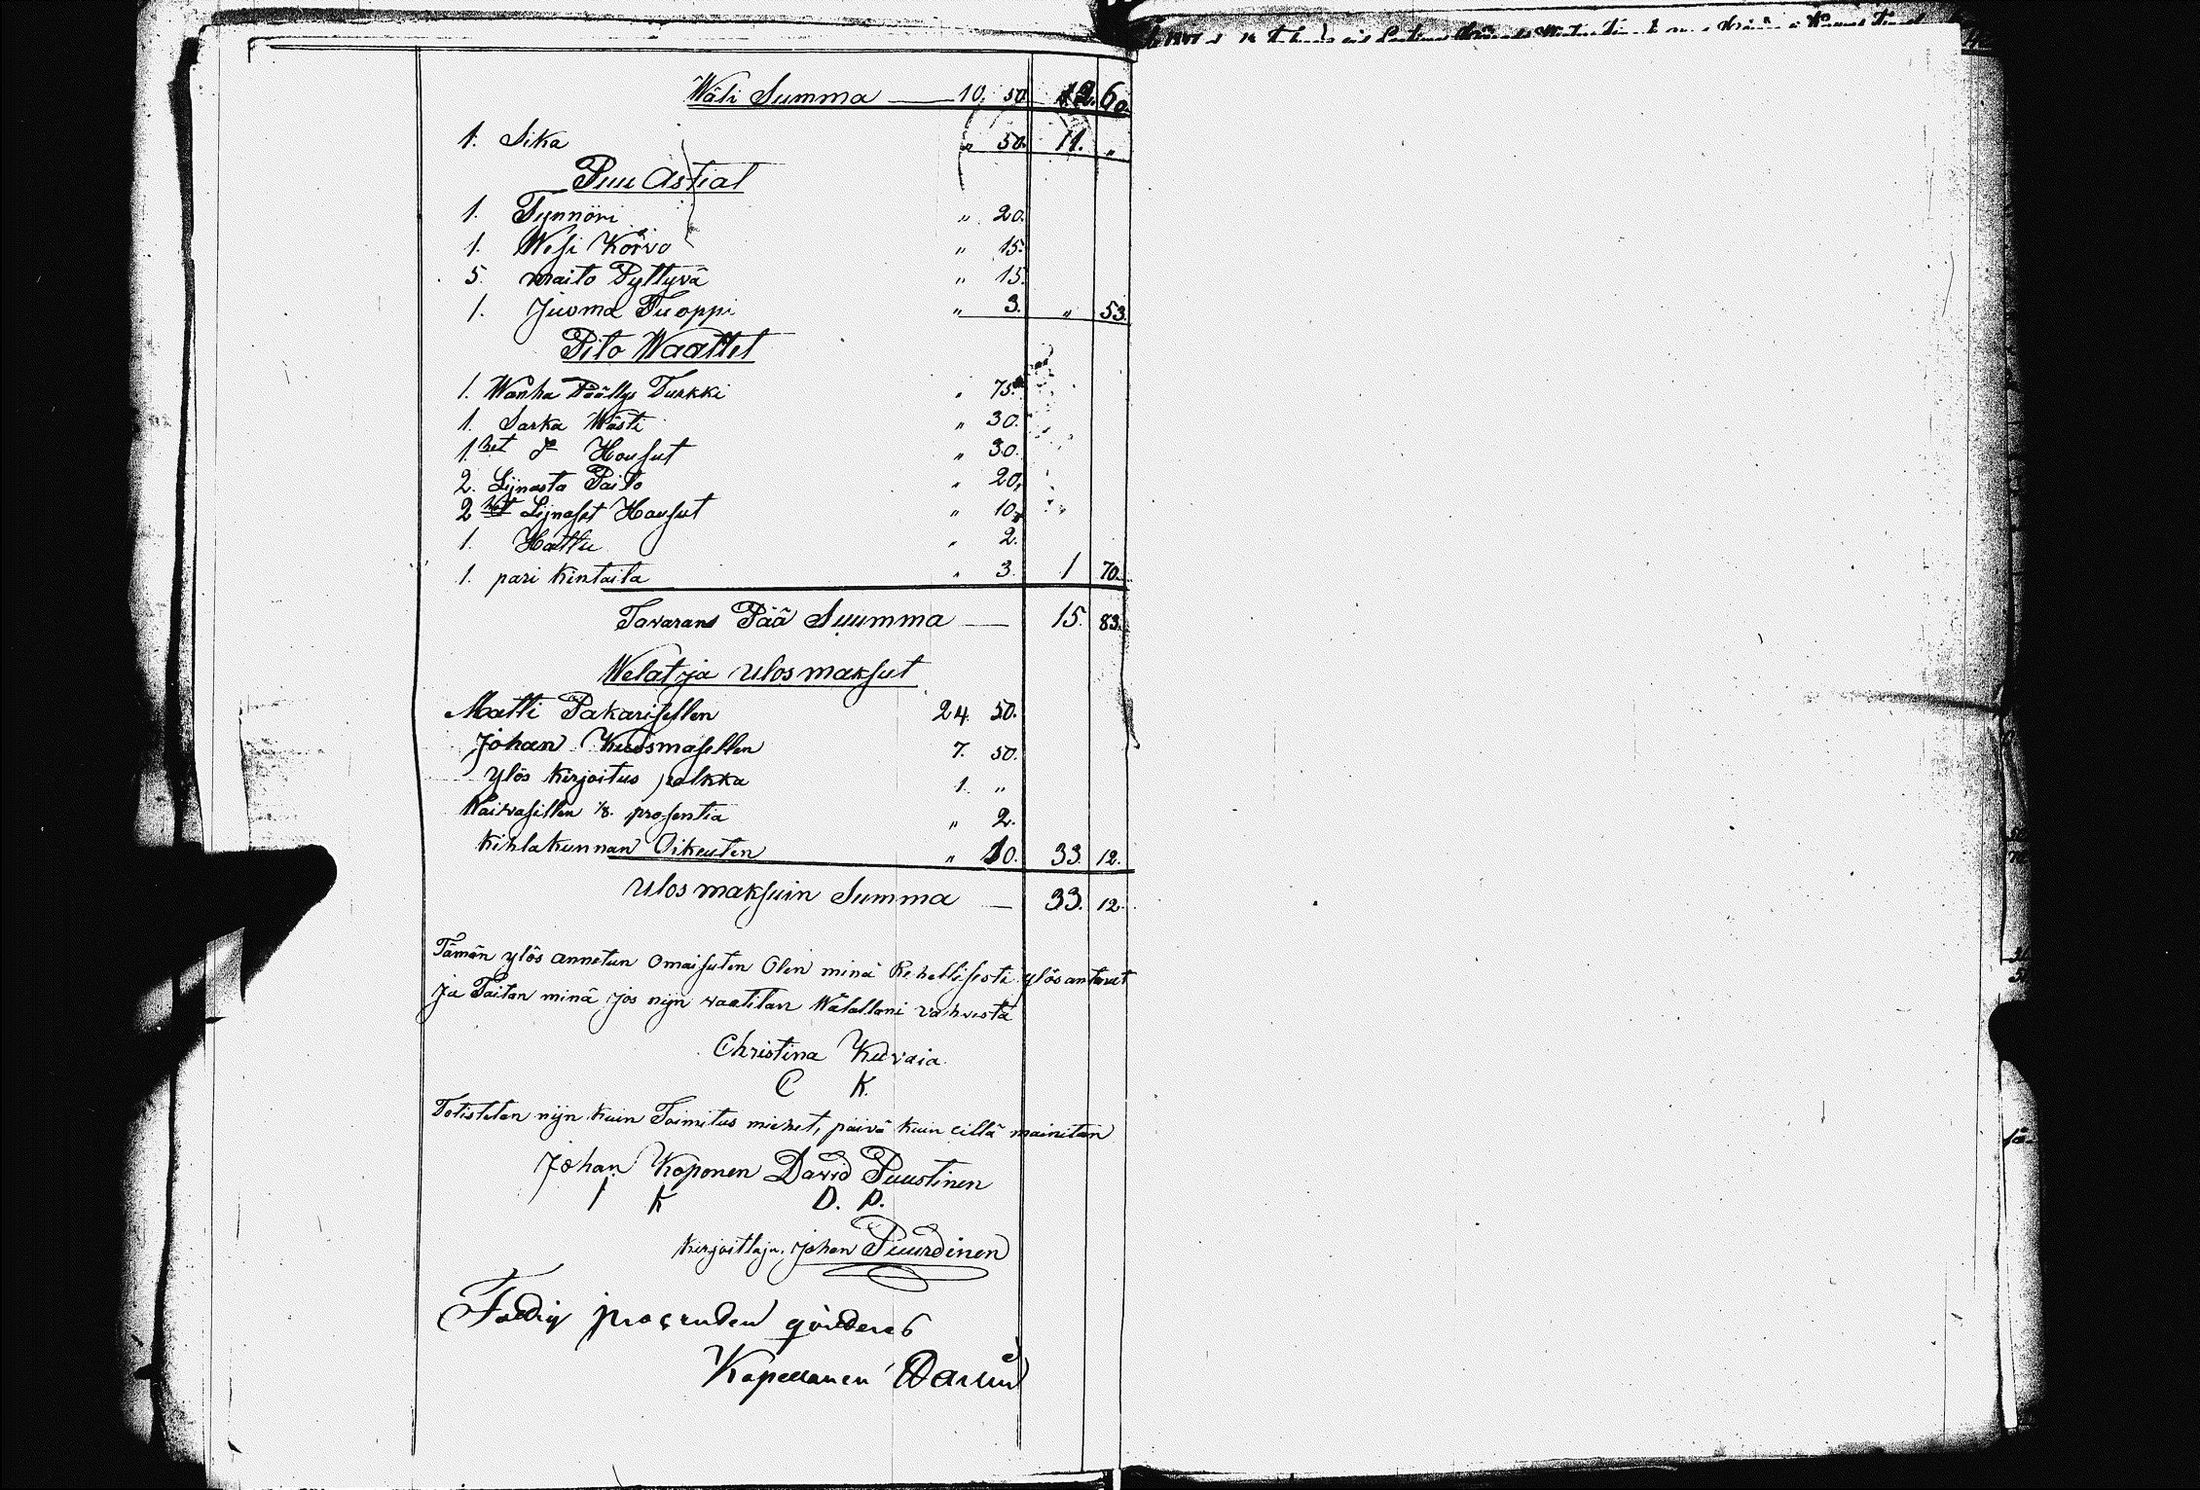 Wäli Summa — 10. 50. 12. 60.
1. Sika " 50. 11. "
Puu Astiat
1. Tynnöri " 20.
1. Wesi Korvo " 15.
5. maito Pyttyvä " 15.
1. Juoma Tuoppi " 3. " 53.
Pito Waattet
1. Wanha Päällys Turkki " 75.
1. Sarka Wästi " 30.
1 het do Housut " 30.
2. Lijnasta Paito " 20.
2 het Lijnaset Housut " 10.
1. Hattu " 2.
1. pari Kintaita " 3. 1 70.
Tavarans Pää Suumma — 15. 83.
Welat ja Ulosmaksut
Matti Pakarisellen 24. 50.
Johan Kuosmasellen 7. 50.
Ylös Kirjoitus palkka 1. "
Waivasillen 1/8. prosentia " 2.
Kihlakunnan Oikeuten " 10. 33. 12.
Ulosmaksuin Summa — 33. 12.
Tämän ylös annetun Omaisuten Olen minä Rehellisesti ylösantanut
ja Taitan minä jos nijn vaatitan Walallani vahvista
Christina Kuvaia
C K.
Totistetan nijn kuin Toimitus miehet, päivä kuin eillä mainitan
Johan Koponen David Puustinen
I K D. P.
Kirjoittaja. Johan Puurdinen
Fattig procenten qvitteras
Kapellanen